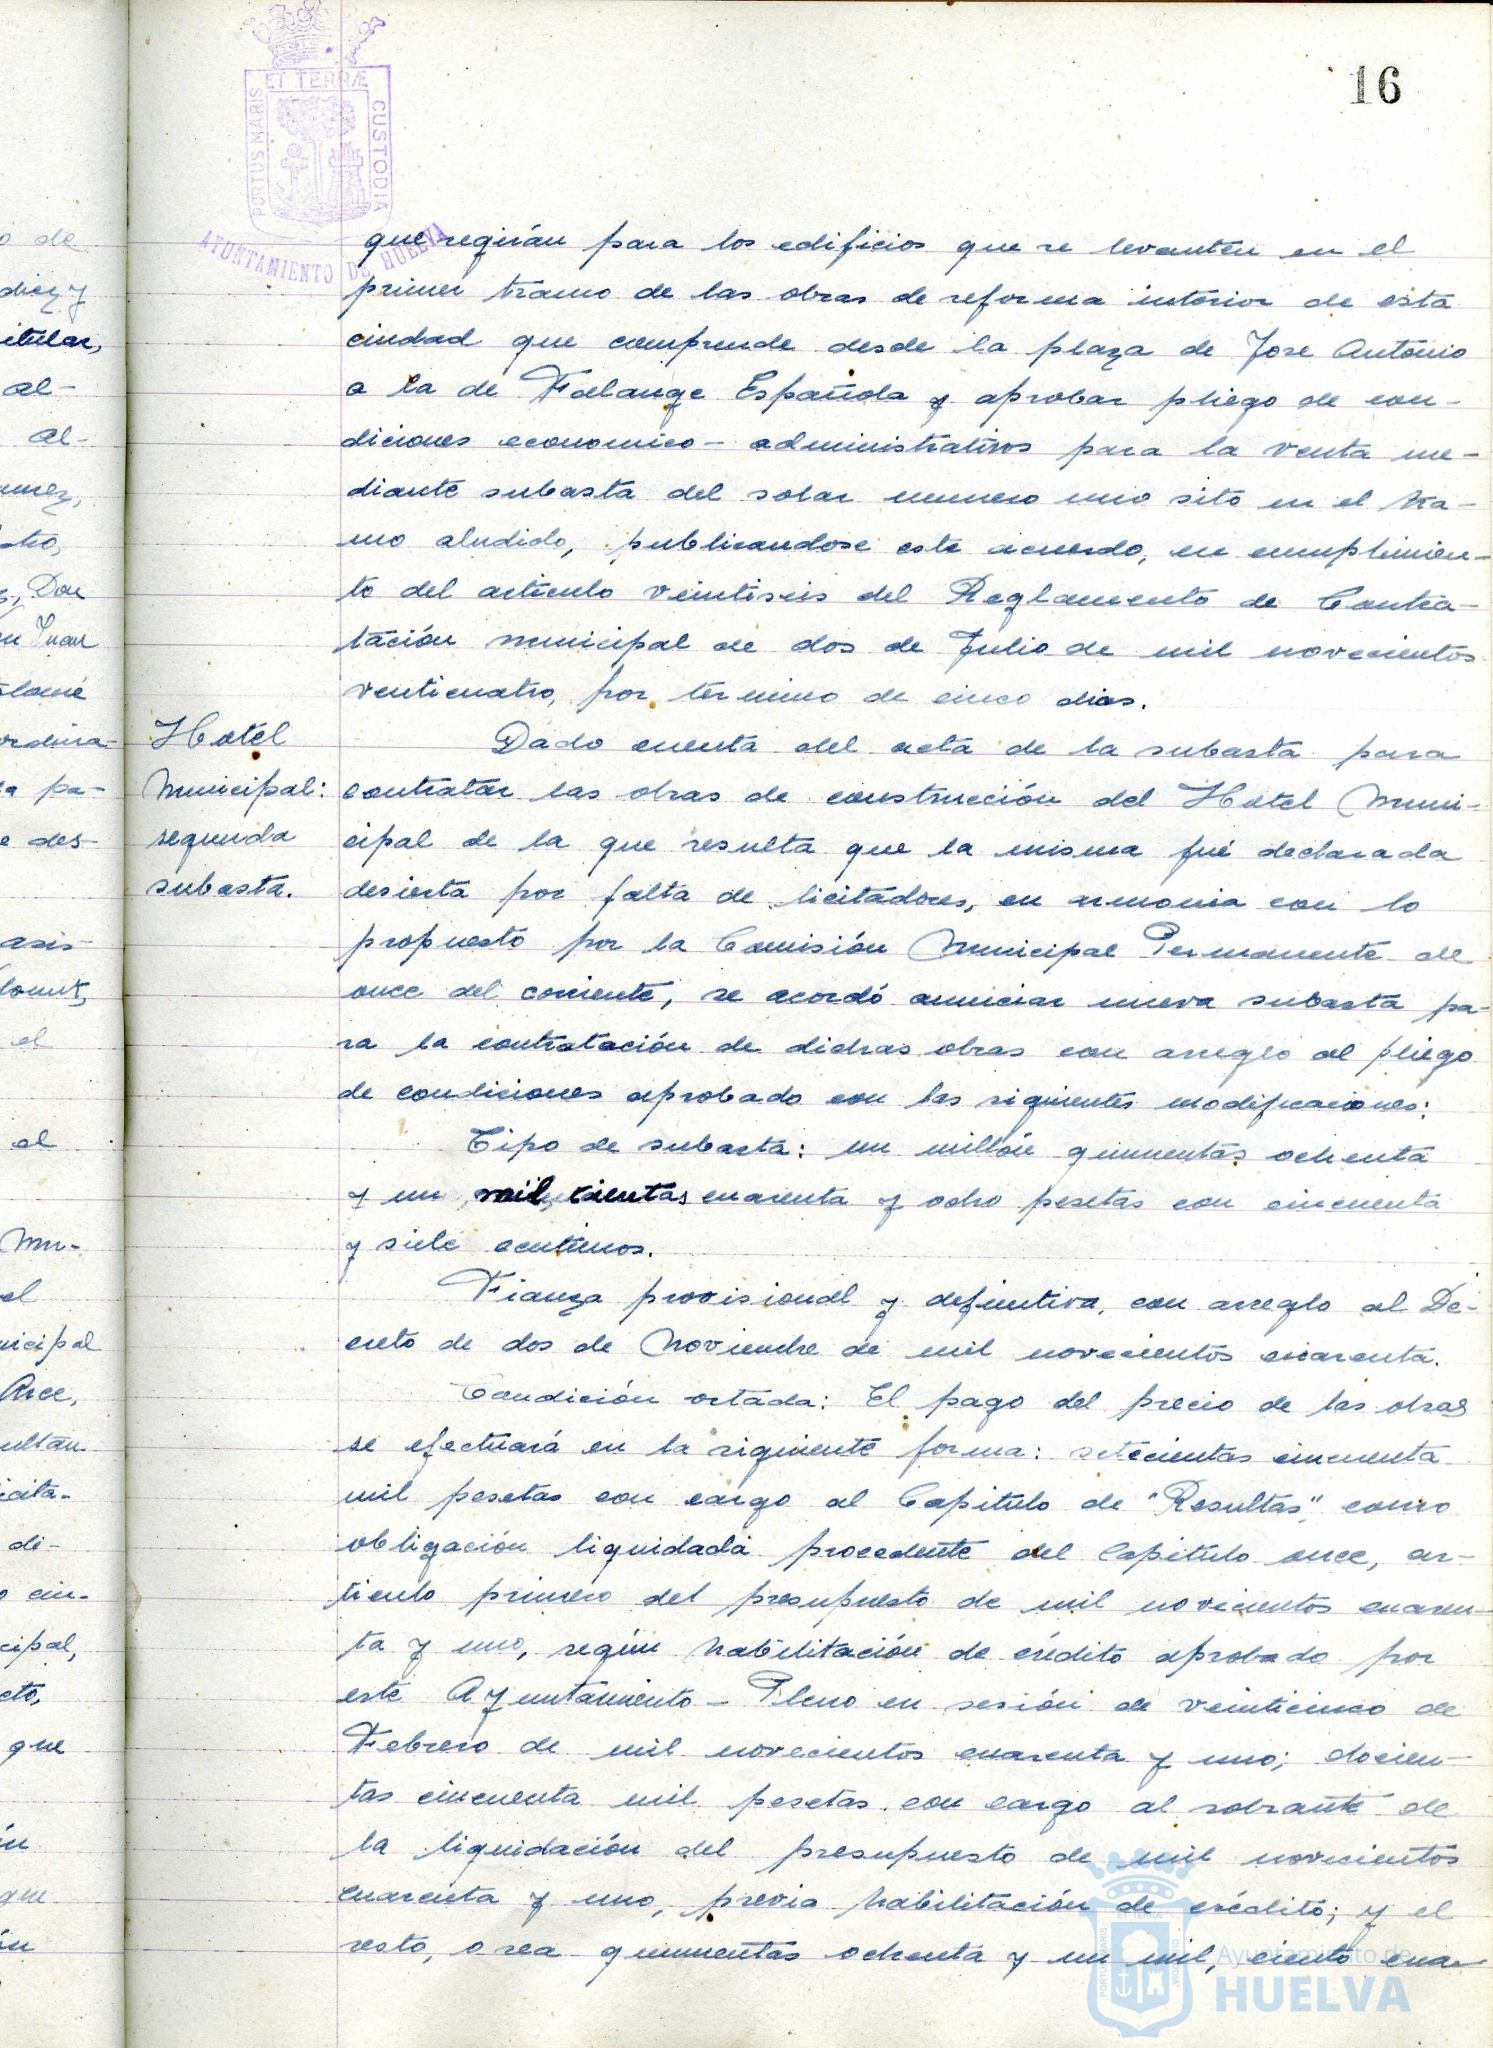 16
PORTUS MARIS
ET TERRÆ
CUSTODIA
AYUNTAMIENTO DE HUELVA
que regirán para los edificios que se levanten en el
primer tramo de las obras de reforma interior de esta
ciudad que comprende desde la plaza de Jose Antonio
a la de Falange Española y aprobar pliego de con-
diciones economico-administrativos para la venta me-
diante subasta del solar numero uno sito en el tra-
mo aludido, publicandose este acuerdo, en cumplimien-
to del articulo veintiseis del Reglamento de Contra-
tación municipal de dos de Julio de mil novecientos
venticuatro, por termino de cinco dias.
Hotel
Municipal:
segunda
subasta.
Dado cuenta del acta de la subasta para
contratar las obras de construcción del Hotel Muni-
cipal de la que resulta que la misma fué declarada
desierta por falta de licitadores, en armonia con lo
propuesto por la Comisión Municipal Permanente de
once del corriente, se acordó anunciar nueva subasta pa-
ra la contratación de dichas obras con arreglo al pliego
de condiciones aprobado con las siguientes modificaciones:
Tipo de subasta: un millón quinientas ochenta
y un mil cientas cuarenta y ocho pesetas con cincuenta
y siete centimos.
Fianza provisional y definitiva, con arreglo al De-
creto de dos de Noviembre de mil novecientos cuarenta.
Condición octada: El pago del precio de las obras
se efectuará en la siguiente forma: setecientas cincuenta
mil pesetas con cargo al Capitulo de "Resultas", como
obligación liquidada procedente del Capitulo once, ar-
ticulo primero del presupuesto de mil novecientos cuaren-
ta y uno, según habilitación de crédito aprobado por
este Ayuntamiento-Pleno en sesión de veinticinco de
Febrero de mil novecientos cuarenta y uno; docien-
tas cincuenta mil pesetas con cargo al sobrante de
la liquidación del presupuesto de mil novecientos
cuarenta y uno, previa habilitación de crédito; y el
resto, o sea quinientas ochenta y un mil, ciento cua-
Ayuntamiento de
HUELVA